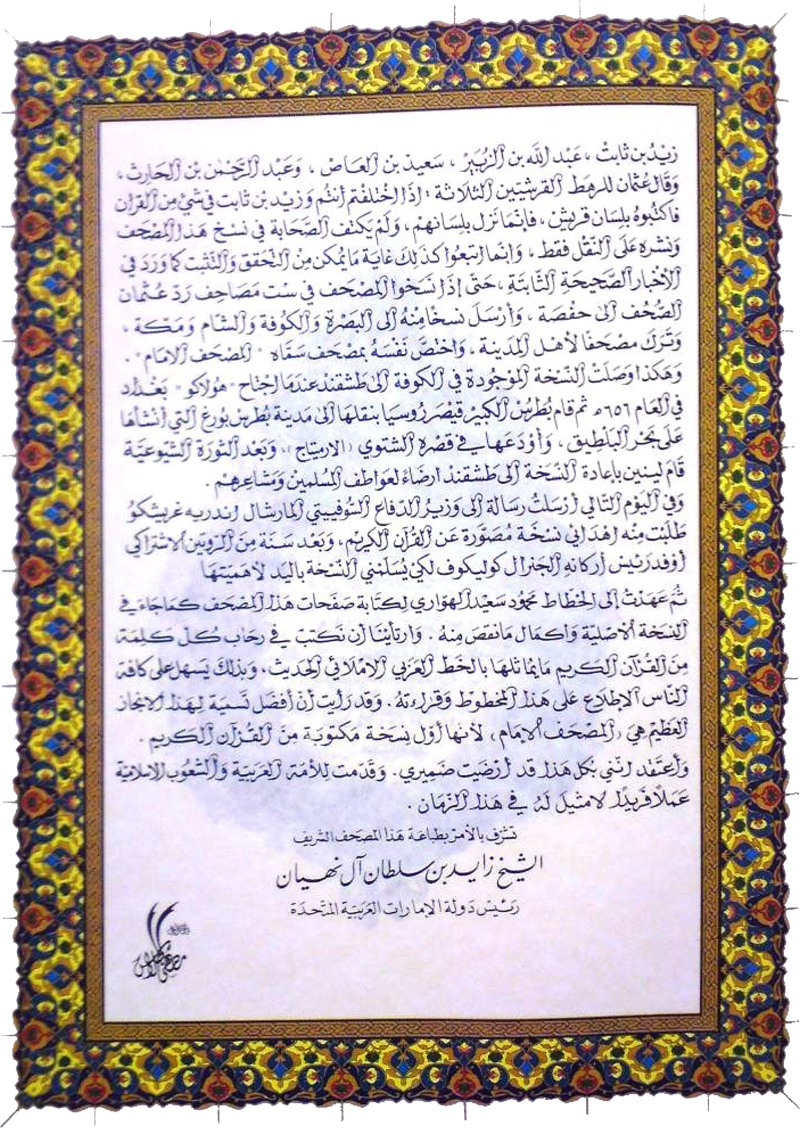 زيد بن ثابت ، عبد الله بن الزبير ، سعيد بن العاص ، وعبد الرحمن بن الحارث ،
وقال عثمان للرهط القرشيين الثلاثة : إذا اختلفتم أنتم وزيد بن ثابت في شيء من القرآن
فاكتبوه بلسان قريش ، فإنما نزل بلسانهم ، ولم يكتف الصحابة في نسخ هذا المصحف
ونشره على النقل فقط ، وإنما اتبعوا كذلك غاية ما يمكن من التحقق والتثبت كما ورد في
الأخبار الصحيحة الثابتة ، حتى إذا نسخوا المصحف في ست مصاحف رد عثمان
الصحف الى حفصة ، وأرسل نسخا منه الى البصرة والكوفة والشام ومكة ،
وترك مصحفا لأهل المدينة ، واختص نفسه بمصحف سماه " المصحف الامام " .
وهكذا وصلت النسخة الموجودة في الكوفة الى طشقند عندما اجتاح " هولاكو " بغداد
في العام ٦٥٦هـ ثم قام بطرس الكبير قيصر روسيا بنقلها الى مدينة بطرس بورغ التي أنشأها
على بحر البلطيق ، وأودعها في قصره الشتوي (الارميتاج) ، وبعد الثورة الشيوعية
قام لينين بإعادة النسخة الى طشقند ارضاءً لعواطف المسلمين ومشاعرهم .
وفي اليوم التالي أرسلت رسالة الى وزير الدفاع السوفييتي المارشال اندريه غريشكو
طلبت منه اهدائي نسخة مصورة عن القرآن الكريم ، وبعد سنة من الروتين الاشتراكي
أوفد رئيس أركانه الجنرال كوليكوف لكي يسلمني النسخة باليد لأهميتها
ثم عهدت إلى الخطاط محمود سعيد الهواري لكتابة صفحات هذا المصحف كما جاء في
النسخة الأصلية واكمال ما نقص منه . وارتأينا أن نكتب في رحاب كل كلمة
من القرآن الكريم ما يماثلها بالخط العربي الاملائي الحديث ، وبذلك يسهل على كافة
الناس الإطلاع على هذا المخطوط وقراءته . وقد رأيت أن أفضل تسمية لهذا الانجاز
العظيم هي (المصحف الإمام) لأنها أول نسخة مكتوبة من القرآن الكريم .
وأعتقد انني بكل هذا قد أرضيت ضميري . وقدمت للأمة العربية والشعوب الاسلامية
عملا فريدًا لا مثيل له في هذا الزمان .
تشرف بالأمر بطباعة هذا المصحف الشريف
الشيخ زايد بن سلطان آل نهيان
رئيس دولة الإمارات العربية المتحدة